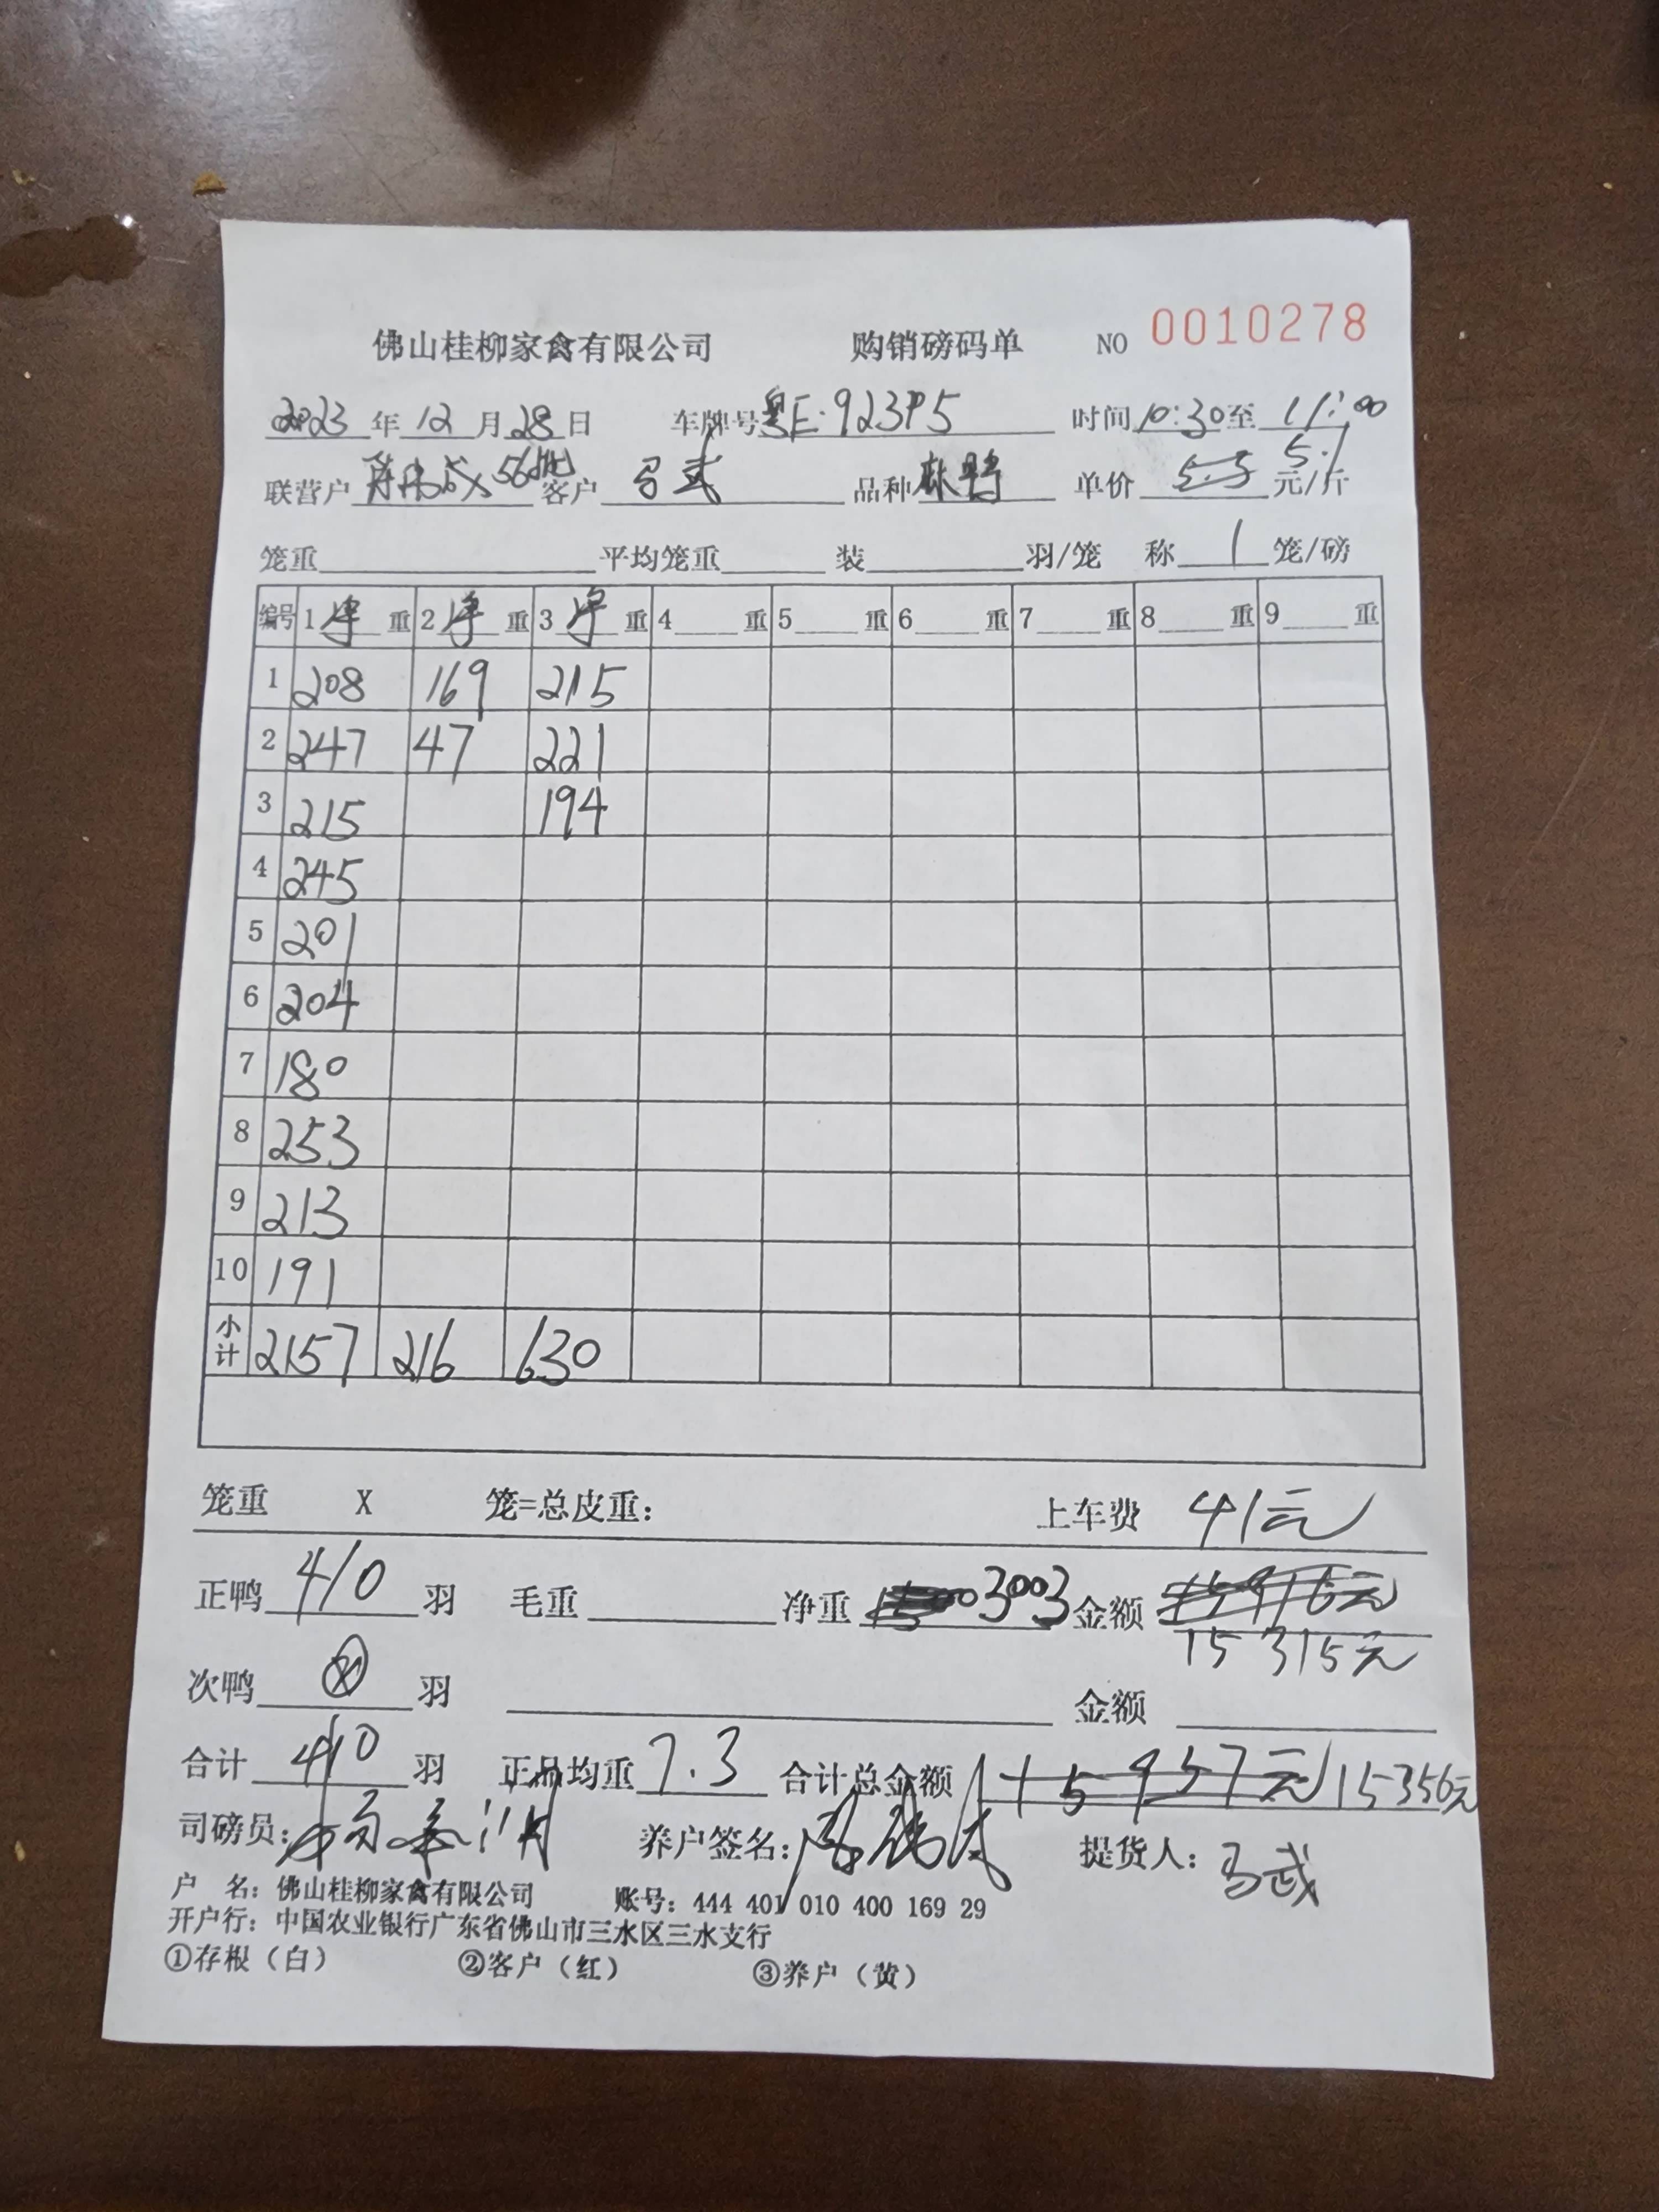 佛山桂柳家禽有限公司 购销磅码单 NO 0010278
2023年12月28日 车牌号粤E·923P5 时间10:30至11:00
联营户 56批 客户 马武 品种麻鸭 单价 5.3 5.1 元/斤
笼重 平均笼重 装 羽/笼 称 1 笼/磅
编号 1净重 2净重 3净重 4 重 5 重 6 重 7 重 8 重 9 重
1 208 169 215
2 247 47 221
3 215 194
4 245
5 201
6 204
7 180
8 253
9 213
10 191
小计 2157 216 630
笼重 X 笼=总皮重: 上车费 41元
正鸭 410 羽 毛重 净重 3003 金额 15916元
15315元
次鸭 羽 金额
合计 410 羽 正品均重 7.3 合计总金额 15957元 15356元
司磅员: 养户签名: 提货人: 马武
户 名: 佛山桂柳家禽有限公司 账号: 444 401 010 400 169 29
开户行: 中国农业银行广东省佛山市三水区三水支行
①存根（白） ②客户（红） ③养户（黄）